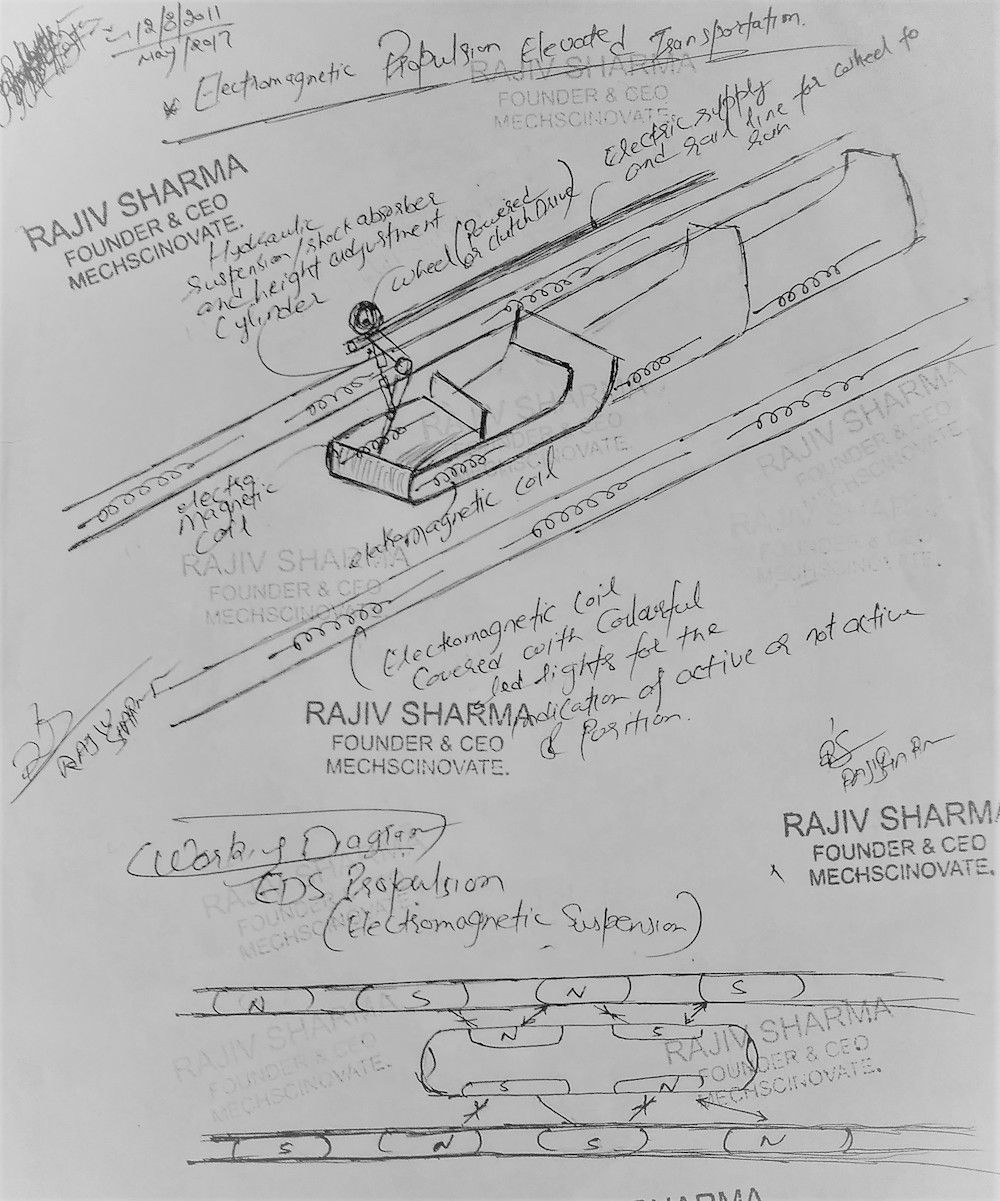 12/8/2011
May/2017
* Electromagnetic Propulsion Elevated Transportation.
RAJIV SHARMA
FOUNDER & CEO
MECHSCINOVATE.
RAJIV SHARMA
FOUNDER & CEO
MECHSCINOVATE.
Electric supply
and rail line for wheel to
run
Hydraulic
suspension/shock absorber
and height adjustment
Cylinder
wheel (Powered
or clutch Drive)
RAJIV SHARMA
FOUNDER & CEO
MECHSCINOVATE.
RAJIV SHARMA
FOUNDER & CEO
MECHSCINOVATE.
electro
magnetic
coil
electromagnetic coil
RAJIV SHARMA
FOUNDER & CEO
MECHSCINOVATE
RAJIV SHARMA
Electromagnetic coil
Covered with Colourful
led lights for the
indication of active or not active
Position.
RAJIV SHARMA
FOUNDER & CEO
MECHSCINOVATE.
RAJIV
SHARMA
RAJIV SHARMA
FOUNDER & CEO
MECHSCINOVATE.
(Working Diagram)
EDS Propulsion
(Electromagnetic Suspension)
RAJIV SHARMA
FOUNDER & CEO
MECHSCINOVATE.
N S N S
N S
RAJIV SHARMA
FOUNDER & CEO
MECHSCINOVATE.
RAJIV SHARMA
FOUNDER & CEO
MECHSCINOVATE.
S N
S N S N